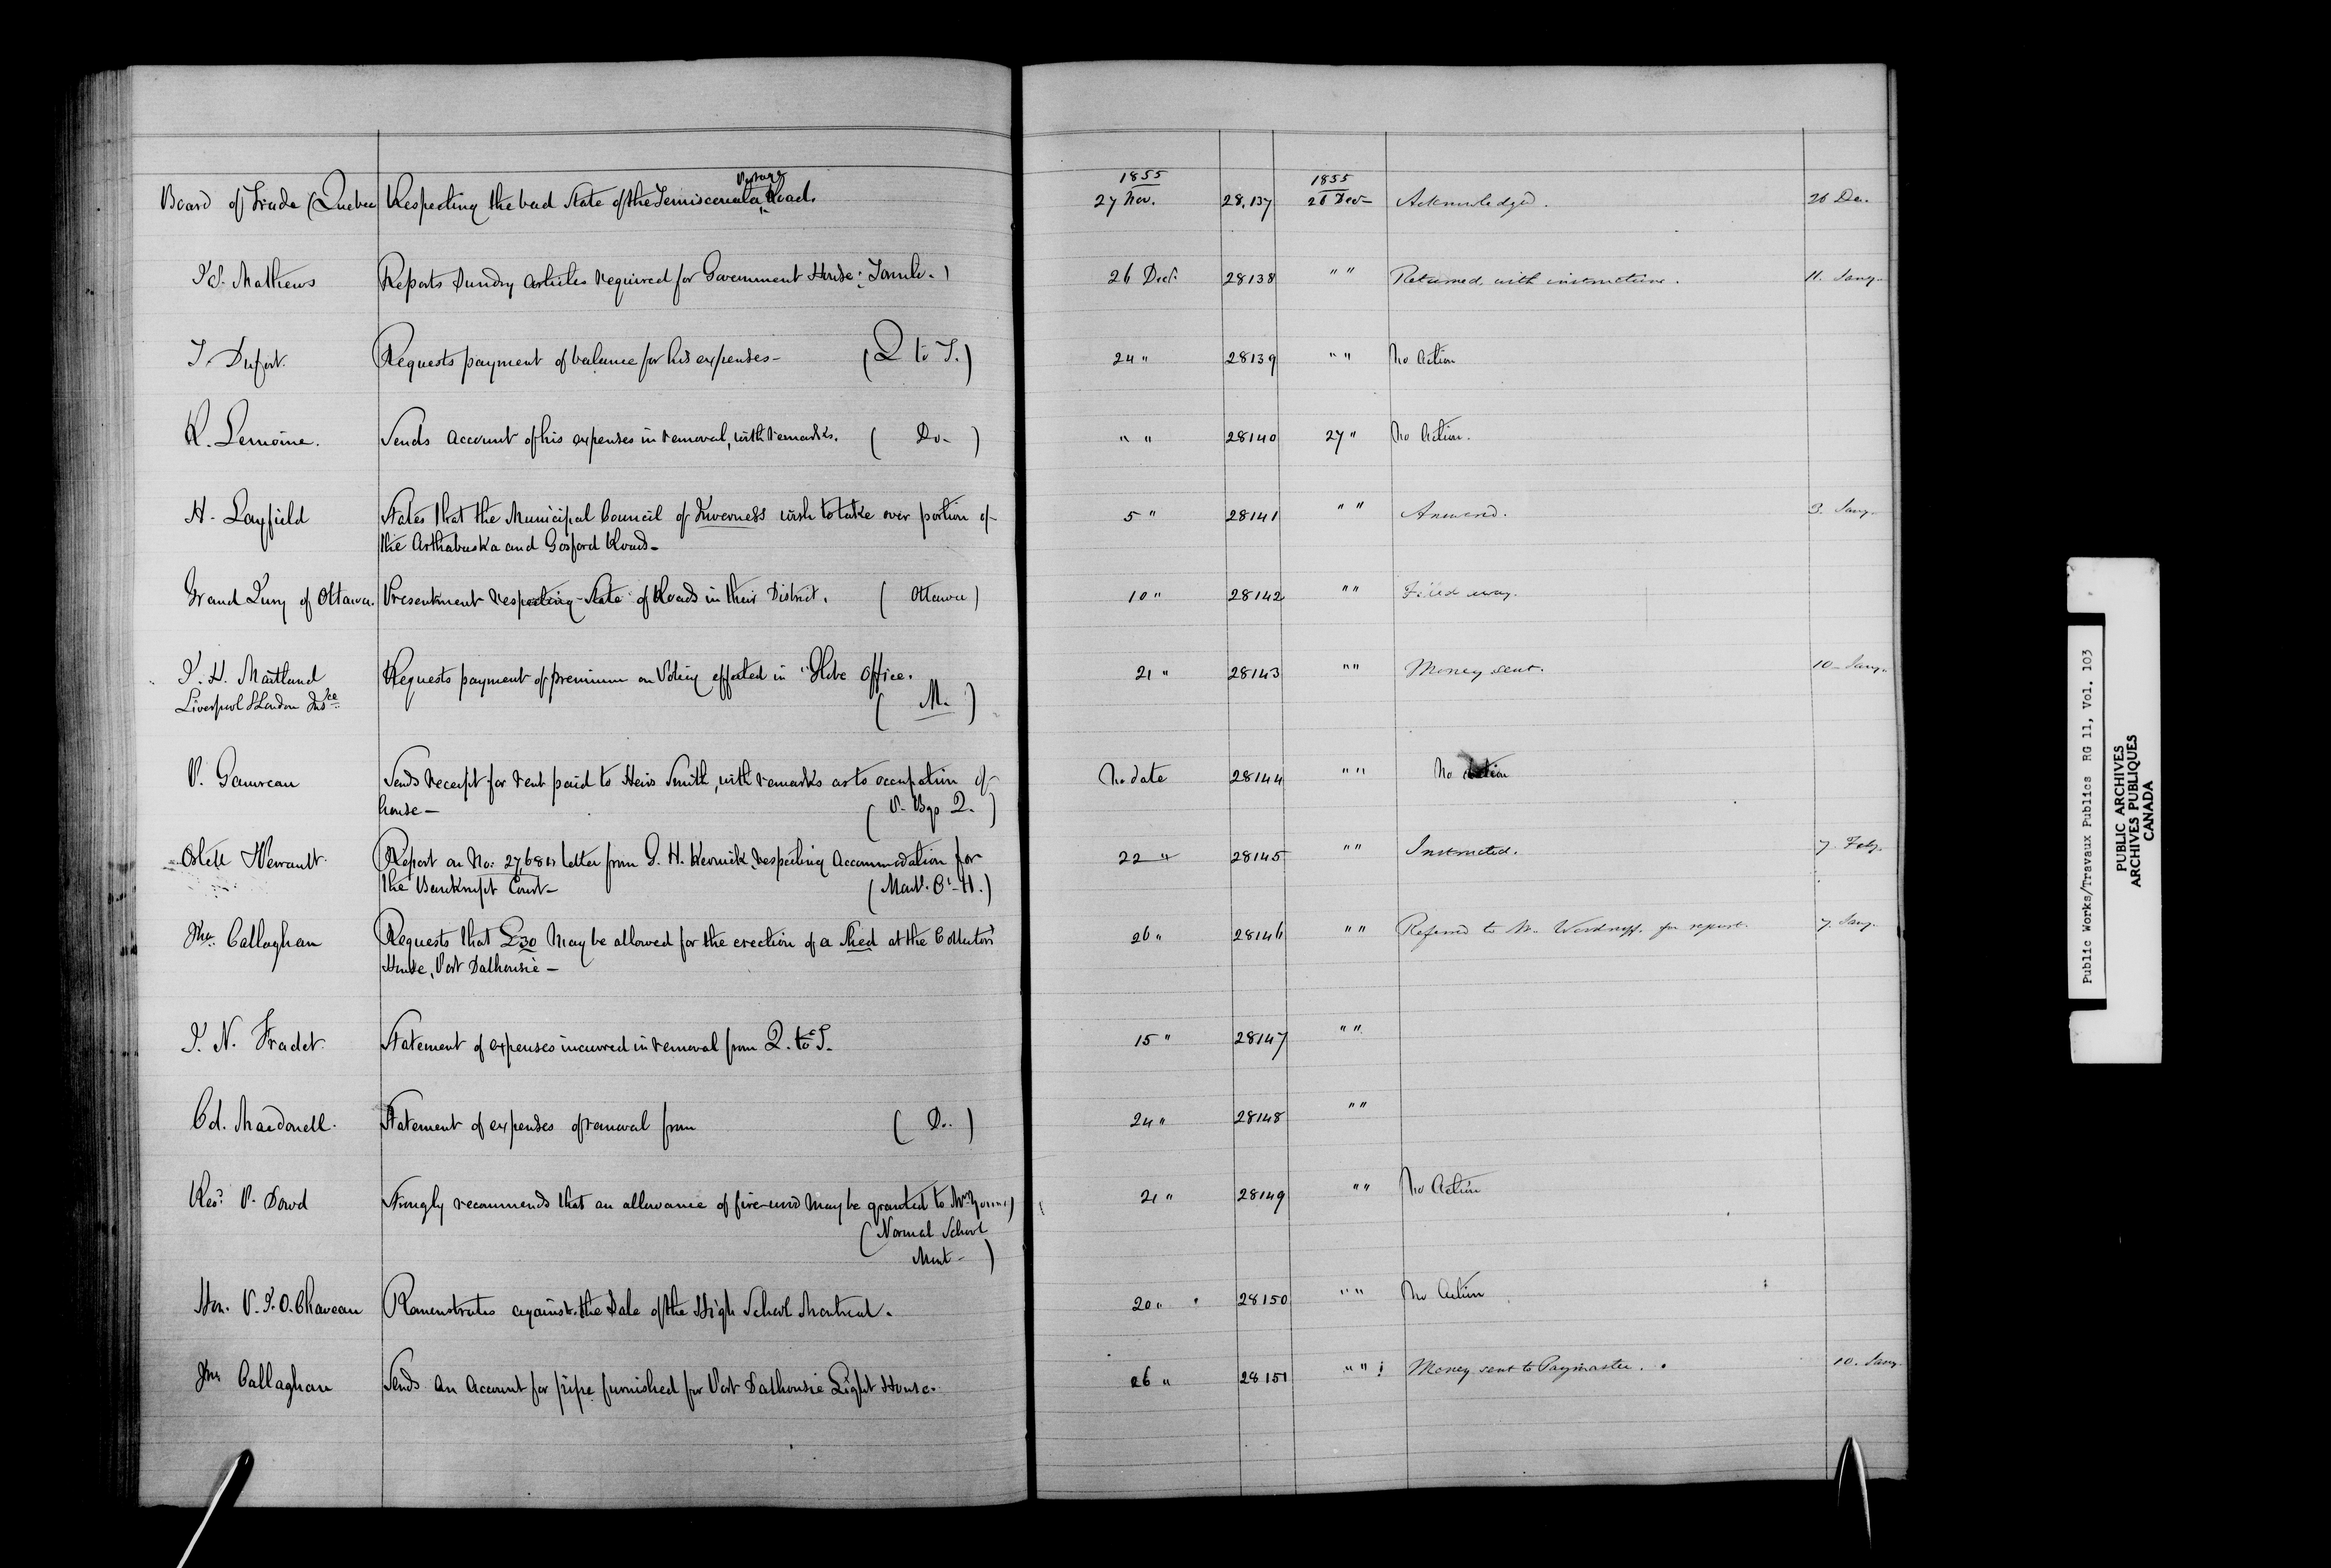 1855 1855
Board of Trade (Quebec Respecting the bad State of the Temiscouata Portage Road. 27 Nov. 28,137 26 Decr Acknowledged. 26 Dec.
Mathews Reports Sundry Articles required for Government House: 26 Decr. 28138 " " Returned with instructions. 11. Jany.
Requests payment of balance for his expenses - (Q to T.) 24 " 28139 " " No Action
Lemoine. Sends Account of his expenses in removal, with remarks. ( Do - ) " " 28140 27 " No Action.
H. Layfield States that the Municipal Council of Inverness wish to take over portion of 5 " 28141 " " Answered. 3. Jany.
the Arthabaska and Gosford Roads -
Grand Jury of Ottawa. Presentment respecting State of Roads in their District. ( Ottawa ) 10 " 28142 " " Filed away.
J. H. Maitland Requests payment of premium on Policy effected in "Globe Office. 21 " 28143 " " Money sent. 10 - Jany.
Liverpool & London Insce ( M. )
P. Gauvreau Sends receipt for rent paid to Heirs Smith, with remarks as to occupation of No date 28144 " " No Action
house - ( P. Bgs Q. )
Report on No. letter from G. H. respecting Accommodation for 22 " 28145 " " Instructed. 7. Feby.
the Bankrupt Court -
Jno. Callaghan Requests that £30 may be allowed for the erection of a Shed at the Collector's 26 " 28146 " " Referred to Mr. Woodruff for report. 7. Jany.
House, Port Dalhousie -
J. N. Fradet. Statement of expenses incurred in removal from Q. to T. 15 " 28147 " "
Macdonell. Statement of expenses of removal from ( Do. ) 24 " 28148 " "
Revd. P. Dowd Strongly recommends that an allowance of fire-wood may be granted to 21 " 28149 " " No Action
(Normal School
Mont - )
Hon. P. J. O. Chaveau Remonstrates against the Sale of the High School Montreal. 20 " 28150 " " No Action
Jno Callaghan Sends an Account for pipe furnished for Port Dalhousie Light House. 26 " 28151 " " Money sent to Paymaster. 10. Jany
Public Works/Travaux Publics RG 11, Vol. 103
PUBLIC ARCHIVES
ARCHIVES PUBLIQUES
CANADA